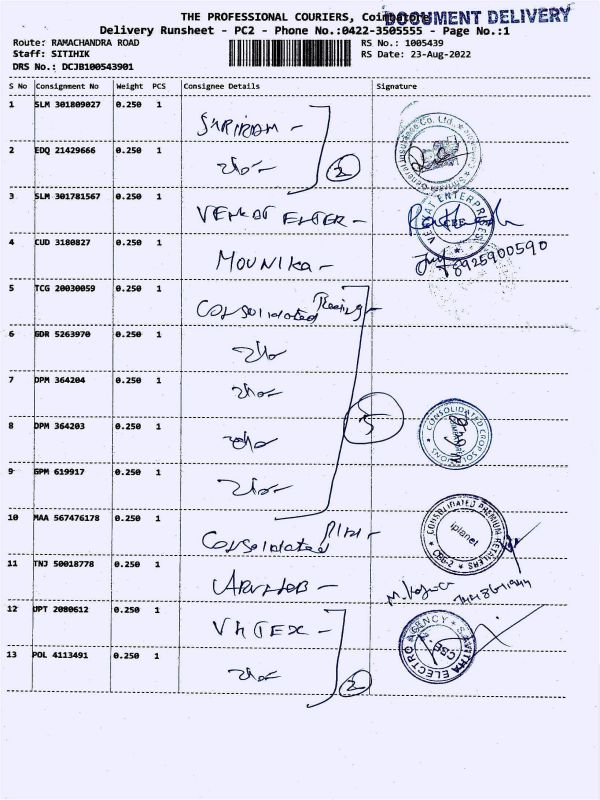 THE PROFESSIONAL COURIERS, Coimbatore
DOCUMENT DELIVERY
Delivery Runsheet - PC2 - Phone No.:0422-3505555 - Page No.:1
Route: RAMACHANDRA ROAD RS No.: 1005439
Staff: SITIHIK RS Date: 23-Aug-2022
DRS No.: DCJB100543901
S No Consignment No Weight PCS Consignee Details Signature
1 SLM 301809027 0.250 1 SHRIRAM -
2 EDQ 21429666 0.250 1
2
3 SLM 301781567 0.250 1 VENKAT ENTER -
VENKAT ENTERPRISES
4 CUD 3180827 0.250 1 MOUNIKA -
8925900590
5 TCG 20030059 0.250 1 Consolidated
6 GDR 5263970 0.250 1
7 DPM 364204 0.250 1
5
8 DPM 364203 0.250 1
CONSOLIDATED CROP SOLNS.
9 GPM 619917 0.250 1
10 MAA 567476178 0.250 1 Consolidated
CONSOLIDATED PREMIUM RETAILERS
iplanet
CBE-2
11 TNJ 50018778 0.250 1
12 UPT 2080612 0.250 1 VATEX -
SAVITHA ELECTRO AGENCY
CBE-2
13 POL 4113491 0.250 1
2